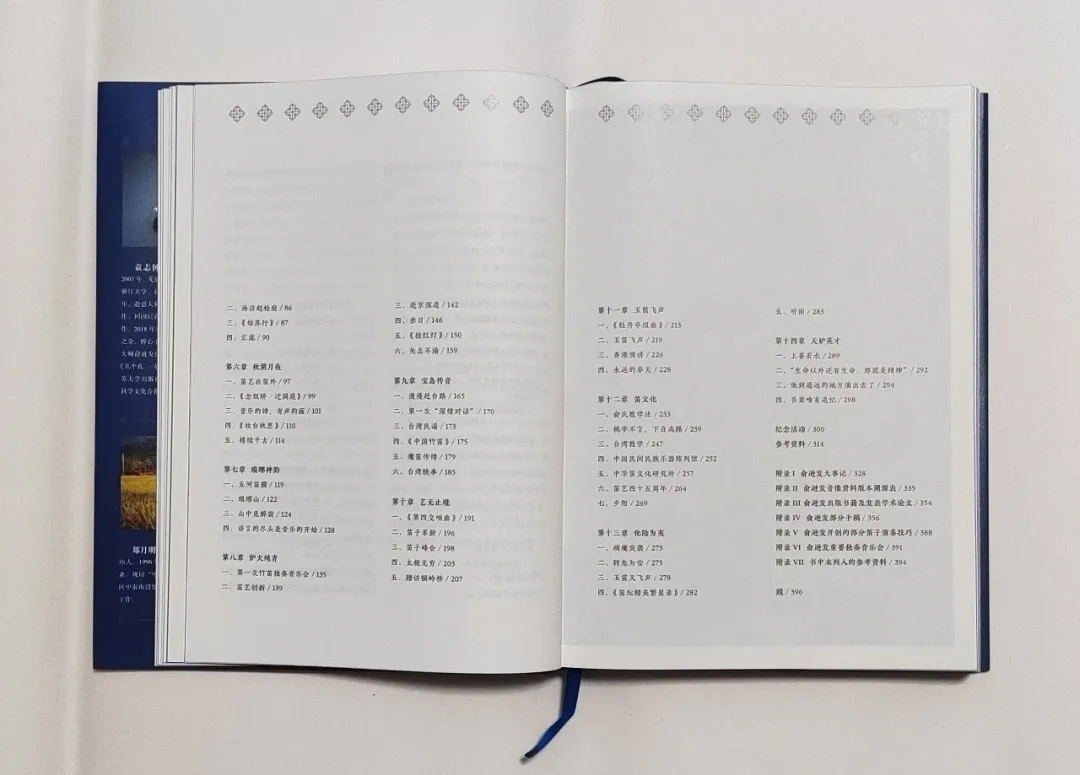 袁志
2007年，
浙江大学，
年，赴意大利
作，回国后
作，2018年
之余，
大师俞逊发
《几个我 一
苏大学出版
科学文化音
郑月明
山人，1996年
业，现居"中
区中东街道
工作。
二、再访赵松庭 / 86
三、《姑苏行》/ 87
四、汇流 / 90
第六章 秋湖月夜
一、笛艺在笛外 / 97
二、《念奴娇·过洞庭》/ 99
三、音乐的诗，有声的画 / 101
四、《妆台秋思》/ 110
五、接续千古 / 114
第七章 琅琊神韵
一、五河笛膜 / 119
二、琅琊山 / 122
三、山中见醉翁 / 124
四、语言的尽头是音乐的开始 / 128
第八章 炉火纯青
一、第一次竹笛独奏音乐会 / 135
二、笛艺创新 / 139
三、赴京深造 / 142
四、亲日 / 146
五、《挂红灯》/ 150
六、矢志不渝 / 159
第九章 宝岛传音
一、漫漫赴台路 / 165
二、第一次"深情对话" / 170
三、台湾民谣 / 173
四、《中国竹笛》/ 175
五、魔笛传情 / 179
六、台湾轶事 / 185
第十章 艺无止境
一、《第四交响曲》/ 191
二、笛子革新 / 196
三、笛子峰会 / 198
四、太极无穷 / 203
五、踏访镇岭移 / 207
第十一章 玉笛飞声
一、《牡丹亭组曲》/ 213
二、玉笛飞声 / 219
三、香港演讲 / 226
四、永远的春天 / 228
第十二章 笛文化
一、俞氏教学法 / 233
二、桃李不言，下自成蹊 / 239
三、台湾教学 / 247
四、中国民间民族乐器陈列馆 / 252
五、中华笛文化研究所 / 257
六、笛艺四十五周年 / 264
七、夕阳 / 269
第十三章 化险为夷
一、病魔突袭 / 273
二、转危为安 / 275
三、玉笛又飞声 / 278
四、《笛坛精英繁星录》/ 282
五、听雨 / 283
第十四章 天妒英才
一、上善若水 / 289
二、"生命以外还有生命，那就是精神" / 292
三、他到遥远的地方演出去了 / 294
四、吾辈唯有追忆 / 298
纪念活动 / 300
参考资料 / 314
附录 I 俞逊发大事记 / 328
附录 II 俞逊发音像资料版本溯源表 / 335
附录 III 俞逊发出版书籍及发表学术论文 / 354
附录 IV 俞逊发部分手稿 / 356
附录 V 俞逊发开创的部分笛子演奏技巧 / 388
附录 VI 俞逊发重要独奏音乐会 / 391
附录 VII 书中未列入的参考资料 / 394
跋 / 396